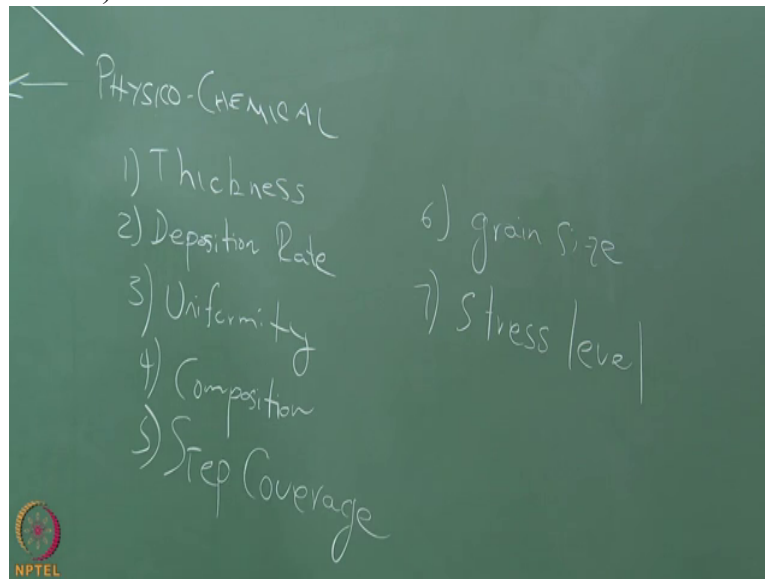 PHYSICO-CHEMICAL
1) Thickness
2) Deposition Rate
3) Uniformity
4) Composition
5) Step Coverage
6) grain size
7) Stress level
NPTEL